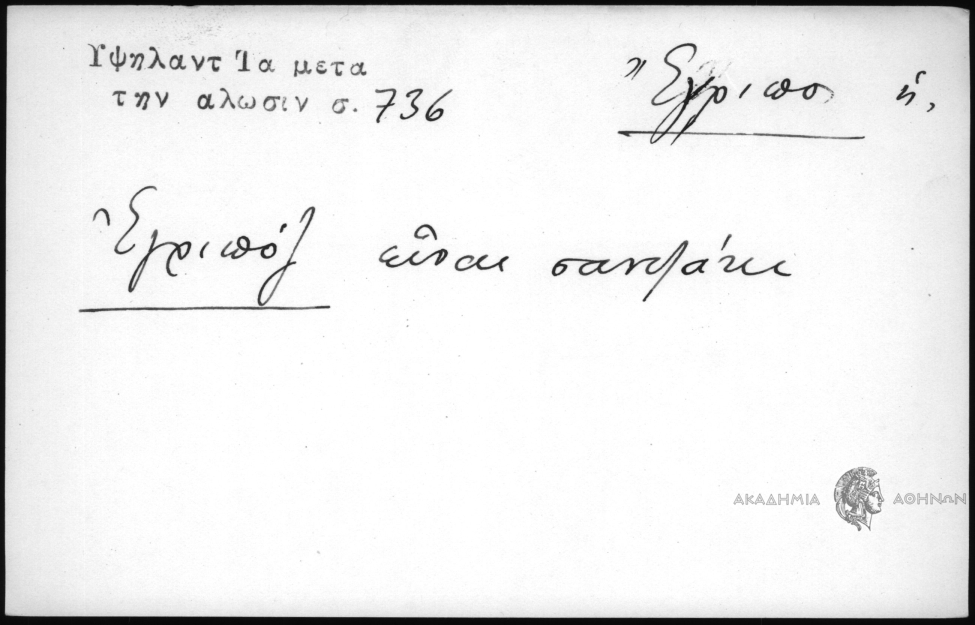 Υψηλαντ Τα μετα
την αλωσιν σ. 736
Ἔγριπος ἡ,
Ἐγριπόζ εἶναι σαντζάκι
ΑΚΑΔΗΜΙΑ ΑΘΗΝΩΝ